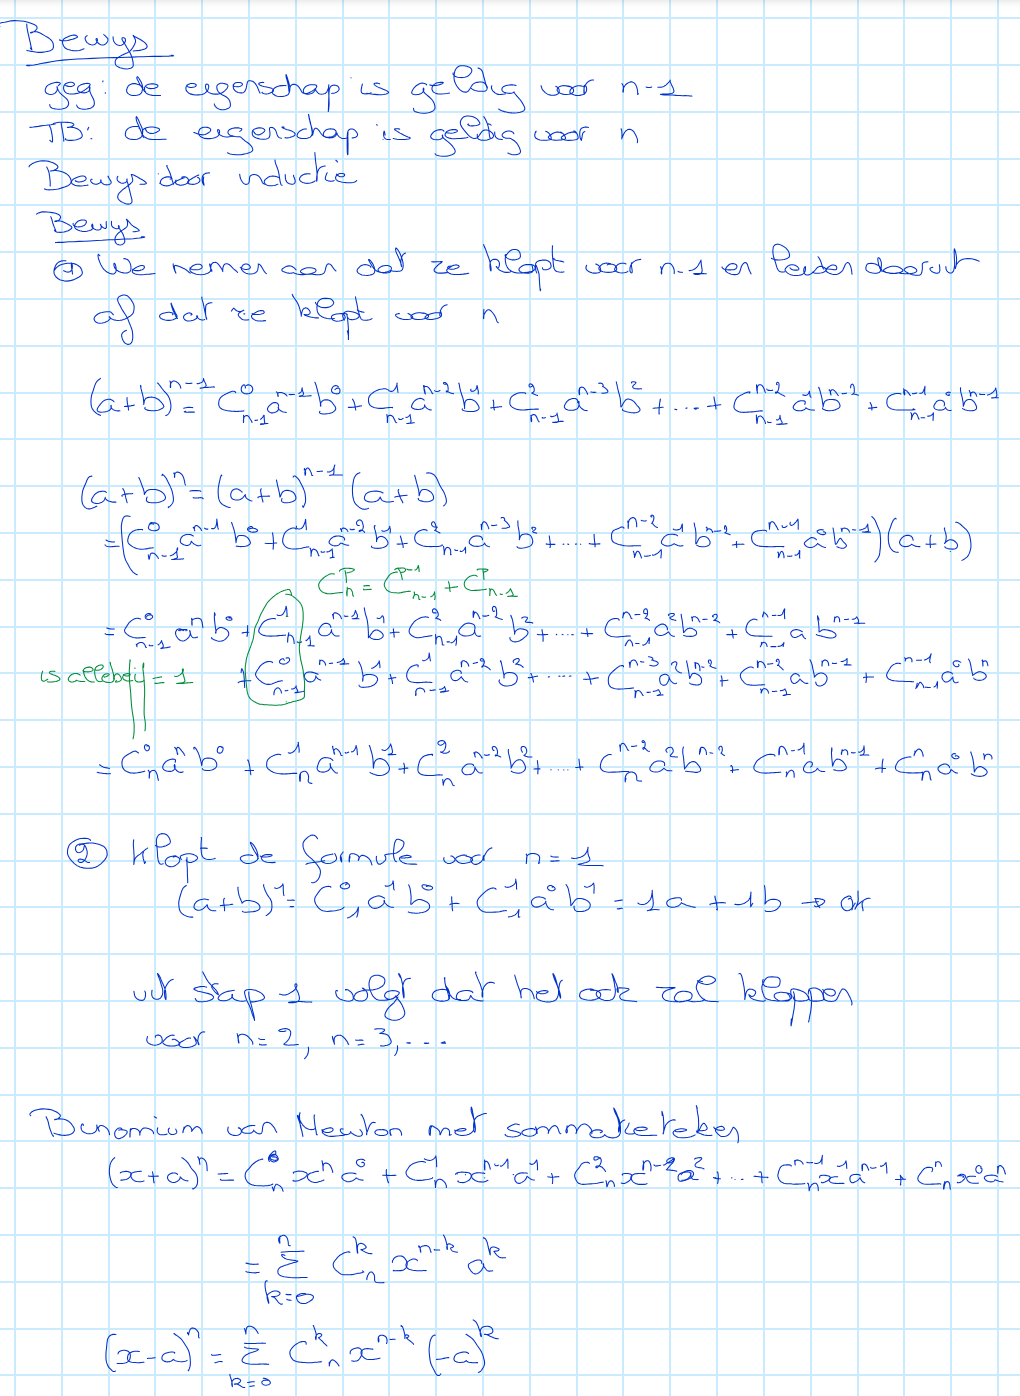 Bewijs
geg: de eigenschap is geldig voor n-1
TB: de eigenschap is geldig voor n
Bewijs door inductie
Bewijs
① We nemen aan dat ze klopt voor n-1 en leiden daaruit
af dat ze klopt voor n
(a+b)^{n-1} = C_{n-1}^0 a^{n-1} b^0 + C_{n-1}^1 a^{n-2} b^1 + C_{n-1}^2 a^{n-3} b^2 + ... + C_{n-1}^{n-2} a^1 b^{n-2} + C_{n-1}^{n-1} a^0 b^{n-1}
(a+b)^n = (a+b)^{n-1} (a+b)
= (C_{n-1}^0 a^{n-1} b^0 + C_{n-1}^1 a^{n-2} b^1 + C_{n-1}^2 a^{n-3} b^2 + .... + C_{n-1}^{n-2} a^1 b^{n-2} + C_{n-1}^{n-1} a^0 b^{n-1})(a+b)
C_n^p = C_{n-1}^{p-1} + C_{n-1}^p
= C_{n-1}^0 a^n b^0 + C_{n-1}^1 a^{n-1} b^1 + C_{n-1}^2 a^{n-2} b^2 + .... + C_{n-1}^{n-2} a^2 b^{n-2} + C_{n-1}^{n-1} a b^{n-1}
is allebeij = 1 + C_{n-1}^0 a^{n-1} b^1 + C_{n-1}^1 a^{n-2} b^2 + .... + C_{n-1}^{n-3} a^2 b^{n-2} + C_{n-1}^{n-2} a b^{n-1} + C_{n-1}^{n-1} a^0 b^n
= C_n^0 a^n b^0 + C_n^1 a^{n-1} b^1 + C_n^2 a^{n-2} b^2 + .... + C_n^{n-2} a^2 b^{n-2} + C_n^{n-1} a b^{n-1} + C_n^n a^0 b^n
② Klopt de formule voor n = 1
(a+b)^1 = C_1^0 a^1 b^0 + C_1^1 a^0 b^1 = 1a + 1b → ok
uit stap 1 volgt dat het ook zal kloppen
voor n = 2, n = 3, ...
Binomium van Newton met sommatieteken
(x+a)^n = C_n^0 x^n a^0 + C_n^1 x^{n-1} a^1 + C_n^2 x^{n-2} a^2 + ... + C_n^{n-1} x^1 a^{n-1} + C_n^n x^0 a^n
= Σ_{k=0}^n C_n^k x^{n-k} a^k
(x-a)^n = Σ_{k=0}^n C_n^k x^{n-k} (-a)^k